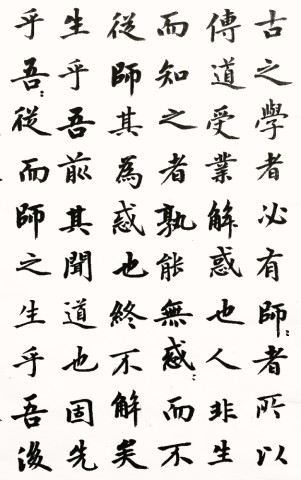 古之學者必有師〻者所以
傳道受業解惑也人非生
而知之者孰能無惑〻而不
從師其為惑也終不解矣
生乎吾前其聞道也固先
乎吾〻從而師之生乎吾後